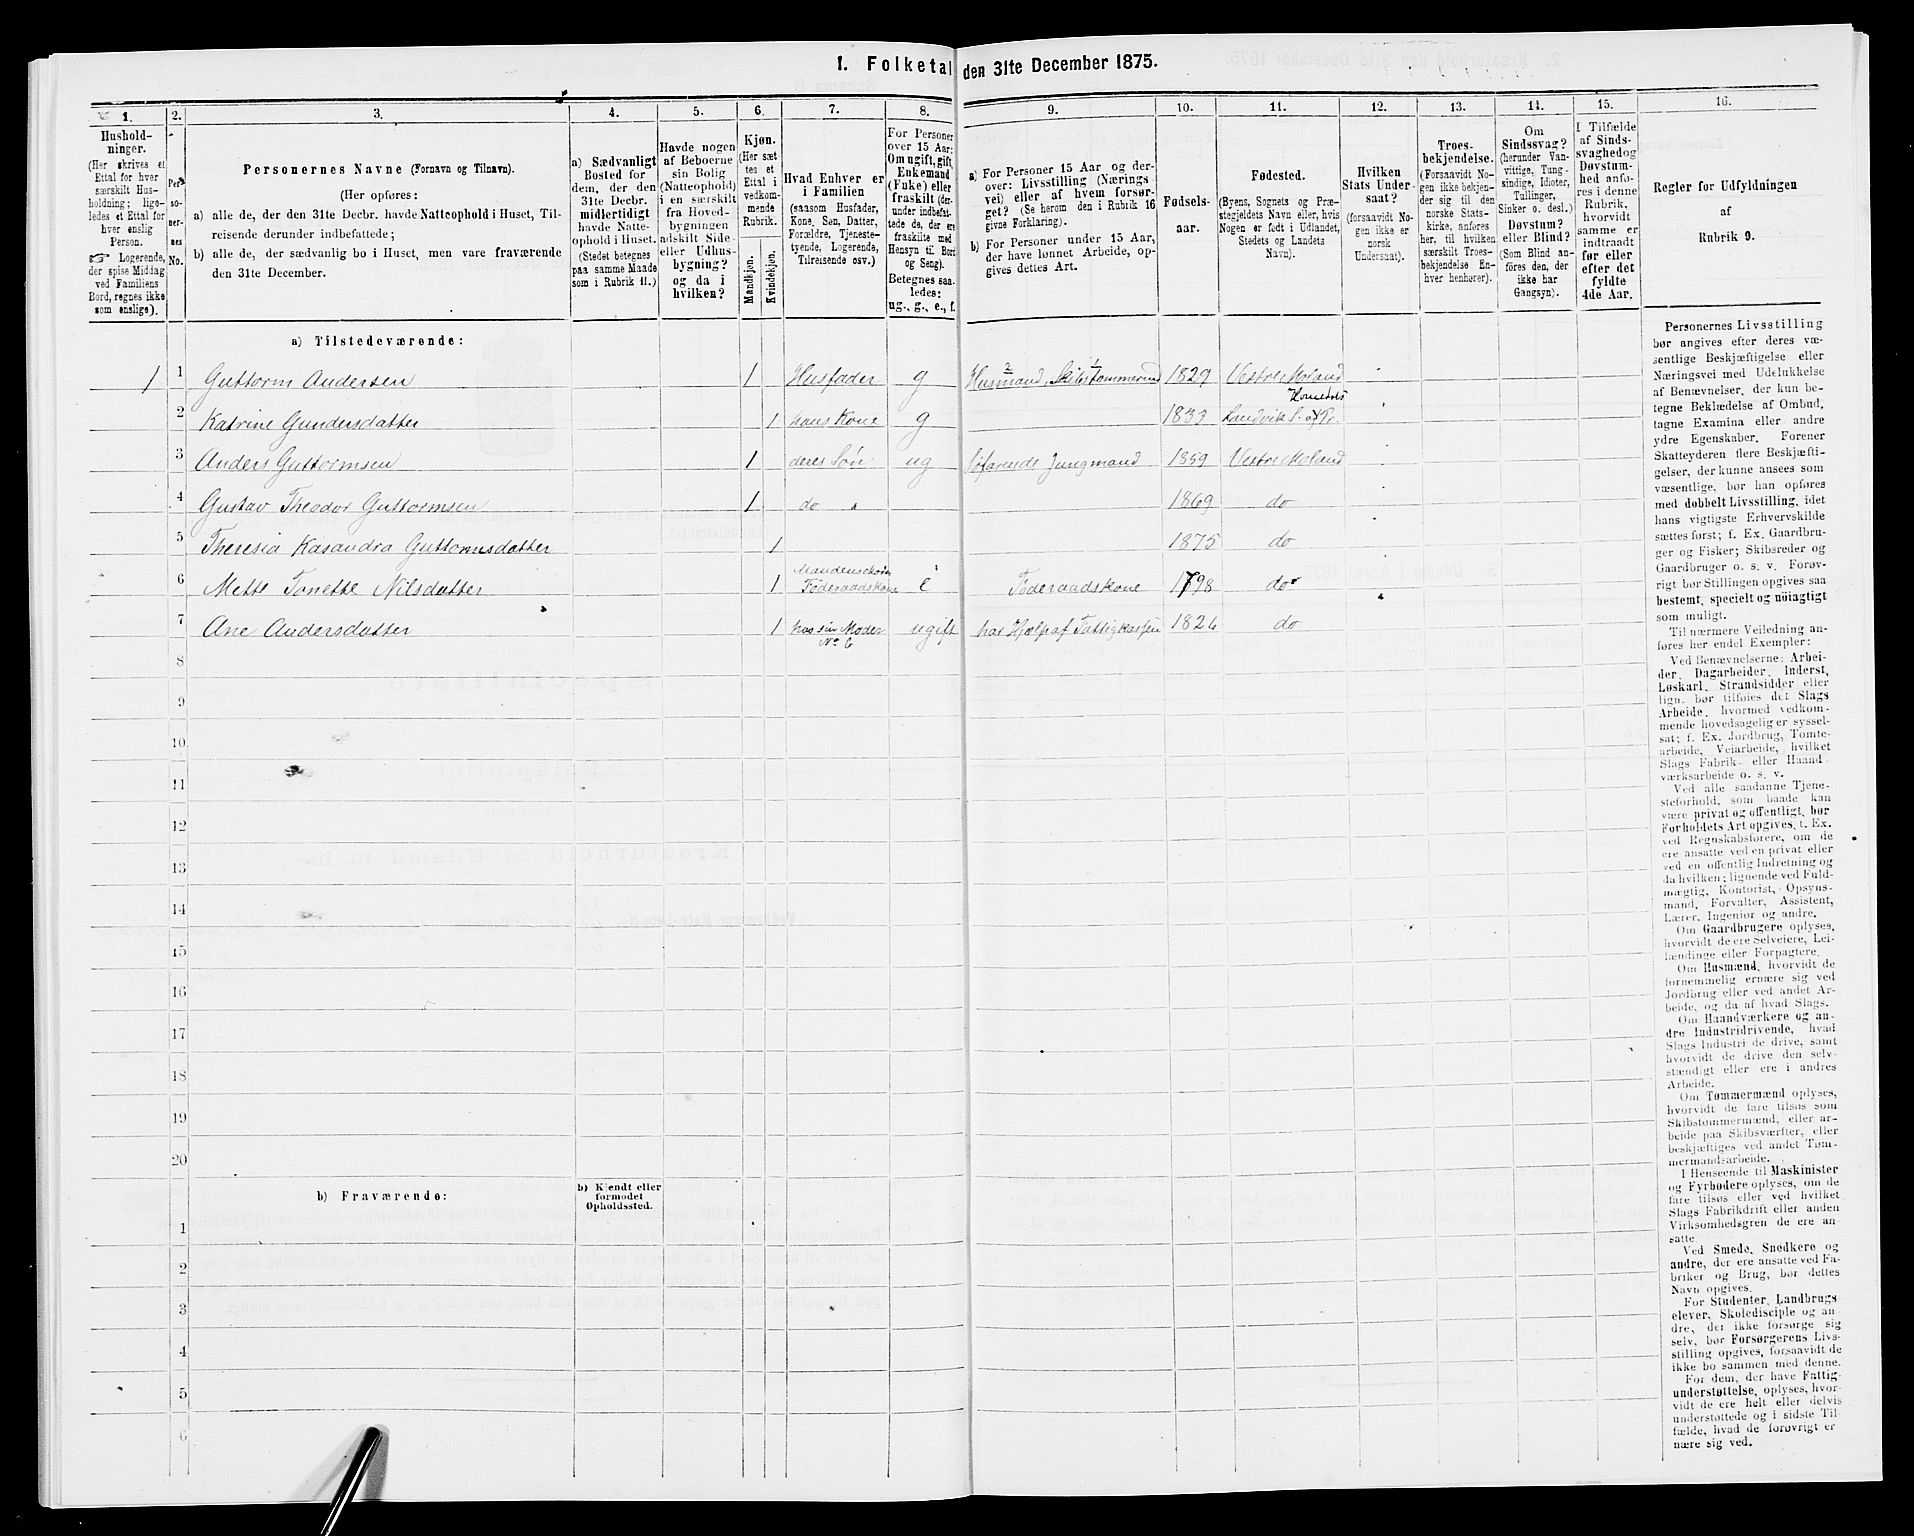 1. Folketal den 31te December 1875.
1. 2. 3. 4. 5. 6. 7. 8. 9. 10. 11. 12. 13. 14. 15. 16.
Hushold-
ninger.
(Her skrives et
Ettal for hver
særskilt Hus-
holdning; lige-
ledes et Ettal for
hver enslig
Person.
☞ Logerende,
der spise Middag
ved Familiens
Bord, regnes ikke
som enslige).
Per-
so-
ner-
nes
No.
Personernes Navne (Fornavn og Tilnavn).
(Her opføres:
a) alle de, der den 31te Decbr. havde Natteophold i Huset, Til-
reisende derunder indbefattede;
b) alle de, der sædvanlig bo i Huset, men vare fraværende
den 31te December.
a) Sædvanligt
Bosted for
dem, der den
31te Decbr.
midlertidigt
havde Natte-
ophold i Huset.
(Stedet betegnes
paa samme Maade
som i Rubrik 11.)
Havde nogen
af Beboerne
sin Bolig
(Natteophold)
i en særskilt
fra Hoved-
bygningen
adskilt Side-
eller Udhus-
bygning?
og da i
hvilken?
Kjøn.
(Her sæt
tes et
Ettal i
vedkom-
mende
Rubrik.
Mandkjøn.
Kvindekjøn.
Hvad Enhver er
i Familien
(saasom Husfader,
Kone, Søn, Datter,
Forældre, Tjeneste-
tyende, Logerende,
Tilreisende osv.)
For Personer
over 15 Aar:
Om ugift, gift,
Enkemand
(Fuke) eller
fraskilt (der-
under indbefat-
tede de, der ere
fraskilte med
Hensyn til Bord
og Seng).
Betegnes saa-
ledes:
ug., g., e., f.
a) For Personer 15 Aar og der-
over: Livsstilling (Nærings
vei) eller af hvem forsør-
get? (Se herom den i Rubrik 16
givne Forklaring).
b) For Personer under 15 Aar,
der have lønnet Arbeide, op-
gives dettes Art.
Fødsels-
aar.
Fødested.
(Byens, Sognets og Præ-
stegjeldets Navn eller, hvis
Nogen er født i Udlandet,
Stedets og Landets
Navn).
Hvilken
Stats Under-
saat?
(forsaavidt No-
gen ikke er
norsk
Undersaat).
Troes-
bekjendelse.
(Forsaavidt No-
gen ikke bekjen-
der sig til den
norske Stats-
kirke, anføres
her, til hvilken
særskilt Troes-
bekjendelse En-
hver henhører).
Om
Sindssvag?
(herunder Van-
vittige, Tung-
sindige, Idioter,
Tullinger,
Sinker o. desl.)
Døvstum?
eller Blind?
(Som Blind an-
føres den, der
ikke har
Gangsyn).
I Tilfælde
af Sinds-
svaghed og
Døvstum-
hed anfø-
res i denne
Rubrik,
hvorvidt
samme er
indtraadt
før eller
efter det
fyldte
4de Aar.
Regler for Udfyldningen
af
Rubrik 9.
a) Tilstedeværende:
1 1 Guttorm Andersen 1 Husfader g Husmand, Skibstømmermand 1829 Vestre Moland
2 Katrine Gundersdatter 1 hans Kone g 1833 Landvik S.
3 Anders Guttormsen 1 deres Søn ug Søfarende Jungmand 1859 Vestre Moland
4 Gustav Theodor Guttormsen 1 do 1869 do
5 Theresia Kasandra Guttormsdatter 1 1875 do
6 Mette Tonette Nilsdatter 1 Føderaadskone e Føderaadskone 1798 do
7 Ane Andersdatter 1 hos sin Moder No 6 ugift har Hjelp af Fattigkassen 1826 do
8
9
10
11
12
13
14
15
16
17
18
19
20
b) Fraværende:
b) Kjendt eller
formodet
Opholdssted.
1
2
3
4
5
6
Personernes Livsstilling
bør angives efter deres væ-
sentlige Beskjæftigelse eller
Næringsvei med Udelukkelse
af Benævnelser, der kun be-
tegne Beklædelse af Ombud,
tagne Examina eller andre
ydre Egenskaber. Forener
Skatteyderen flere Beskjæfti-
gelser, der kunne ansees som
væsentlige, bør han opføres
med dobbelt Livsstilling, idet
hans vigtigste Erhvervskilde
sættes først; f. Ex. Gaardbru-
ger og Fisker; Skibsreder og
Gaardbruger o. s. v. Forøv-
rigt bør Stillingen opgives saa
bestemt, specielt og nöiagtigt
som muligt.
Til nærmere Veiledning an-
føres her endel Exempler:
Ved Benævnelserne: Arbei-
der, Dagarbeider, Inderst,
Løskarl, Strandsidder eller
lign. bør tilføies det Slags
Arbeide, hvormed vedkom-
mende hovedsagelig er syssel-
sat; f. Ex. Jordbrug, Tomte-
arbeide, Veiarbeide, hvilket
Slags Fabrik- eller Haand
værksarbeide o. s. v.
Ved alle saadanne Tjene-
steforhold, som baade kan
være privat og offentligt, bør
Forholdets Art opgives, t. Ex.
ved Regnskabsførere, om de
ere ansatte ved en privat eller
ved en offentlig Indretning og
da hvilken; lignende ved Fuld-
mægtig, Kontorist, Opsyns-
mand, Forvalter, Assistent,
Lærer, Ingeniør og andre.
Om Gaardbrugere oplyses,
hvorvidt de ere Selveiere, Lei-
lændinge eller Forpagtere.
Om Husmænd, hvorvidt de
fornemmelig ernære sig ved
Jordbrug eller ved andet Ar-
beide, og da af hvad Slags.
Om Haandværkere og an-
dre Industridrivende, hvad
Slags Industri de drive, samt
hvorvidt de drive den selv-
stændigt eller ere i andres
Arbeide.
Om Tømmermænd oplyses,
hvorvidt de fare tilsøs som
Skibstømmermænd, eller ar-
beide paa Skibsværfter, eller
beskjæftiges ved andet Tøm-
mermandsarbeide.
I Henseende til Maskinister
og Fyrbødere oplyses, om de
fare tilsøs eller ved hvilket
Slags Fabrikdrift eller anden
Virksomhedsgren de ere an-
satte.
Ved Smede, Snedkere og
andre, der ere ansatte ved Fa-
briker og Brug, bør dettes
Navn opgives.
For Studenter, Landbrugs
elever, Skoledisciple og an-
dre, der ikke forsørge sig
selv, bør Forsørgerens Livs-
stilling opgives, forsaavidt de
ikke bo sammen med denne.
For dem, der have Fattig-
understøttelse, oplyses, hvor-
vidt de ere helt eller delvis
understøttede og i sidste Til-
fælde, hvad de forøvrigt er
nære sig ved.